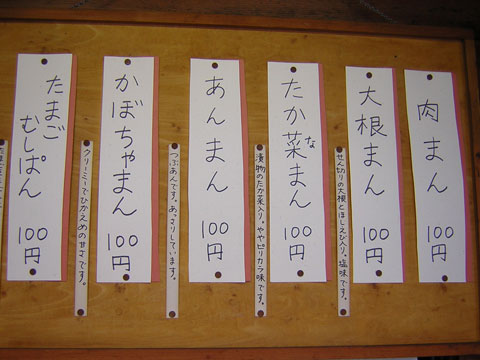 肉まん 100円
大根まん 100円
せん切りの大根とほしえび入り。塩味です。
たか菜まん 100円
な
漬物のたか菜入り。ややピリカラ味です。
あんまん 100円
つぶあんです。あっさりしています。
かぼちゃまん 100円
クリーミーでひかえめの甘さです。
たまご
むしぱん 100円